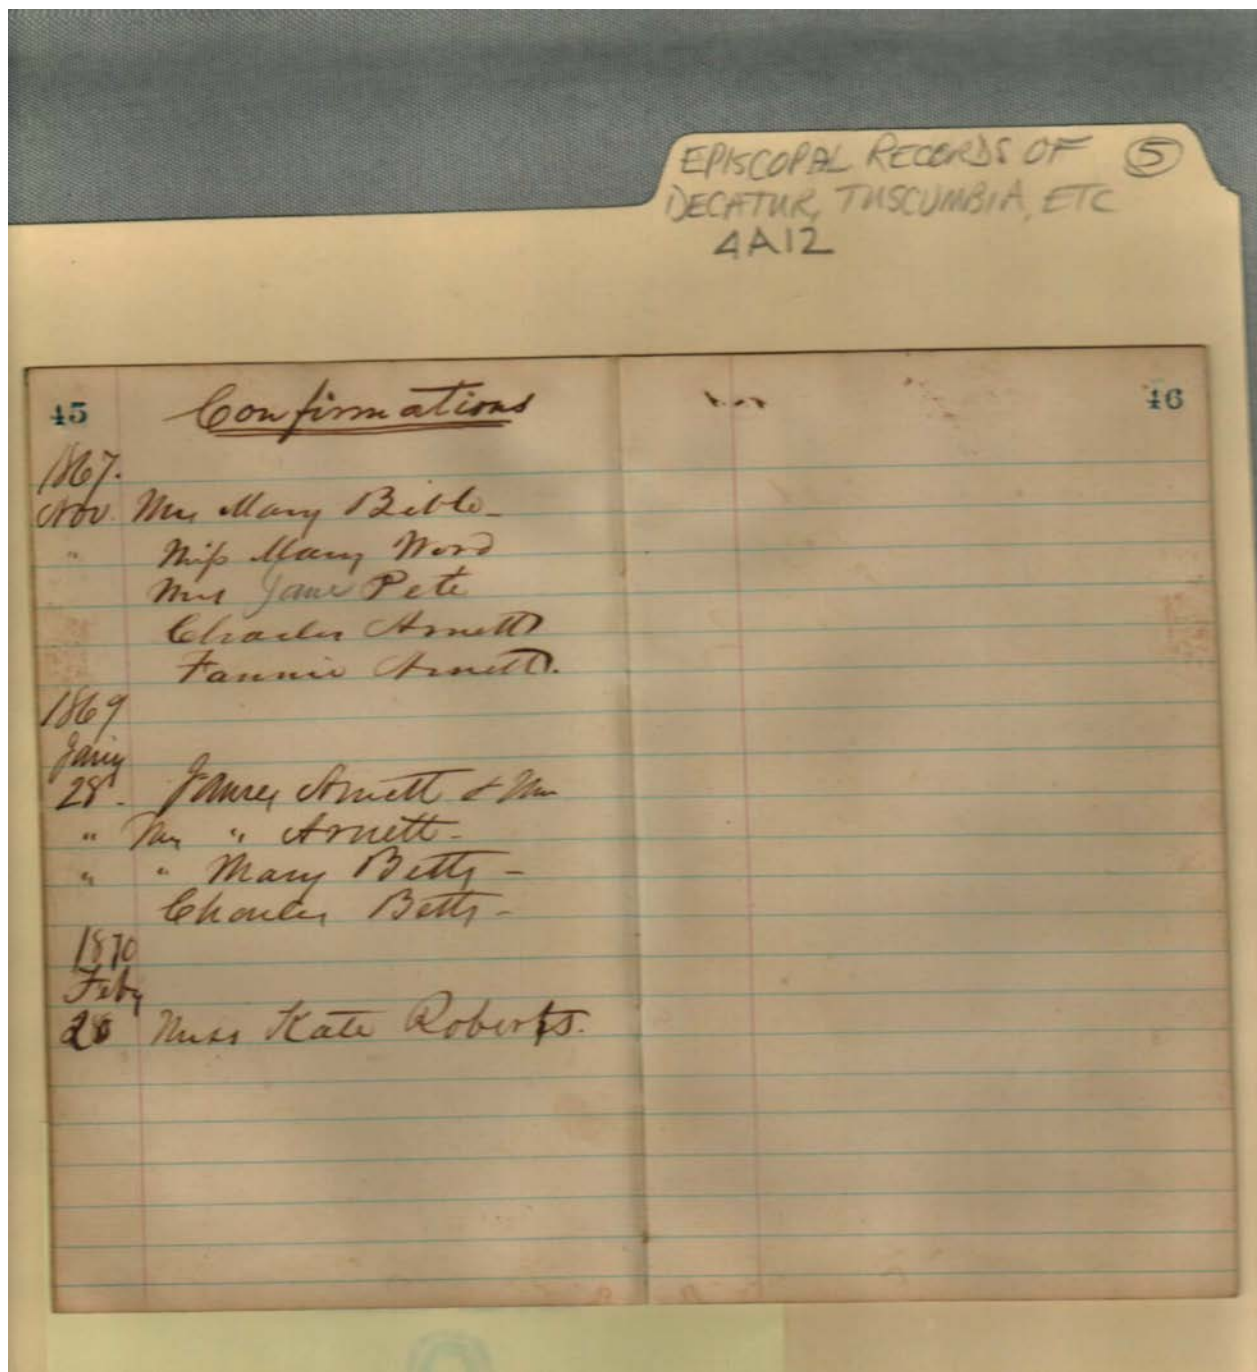 EPISCOPAL RECORDS OF 5
DECATUR, TUSCUMBIA, ETC
4A12
45 Confirmations 46
1867.
Nov. Mrs Mary Bible
" Miss Mary Word
Mrs Jane Pete
Charles Arnett
Fannie Arnett.
1869
Jany
28. James Arnett & Mrs
" Mrs " Arnett -
" " Mary Betts -
Charles Betts -
1870
Feby
Miss Kate Roberts.